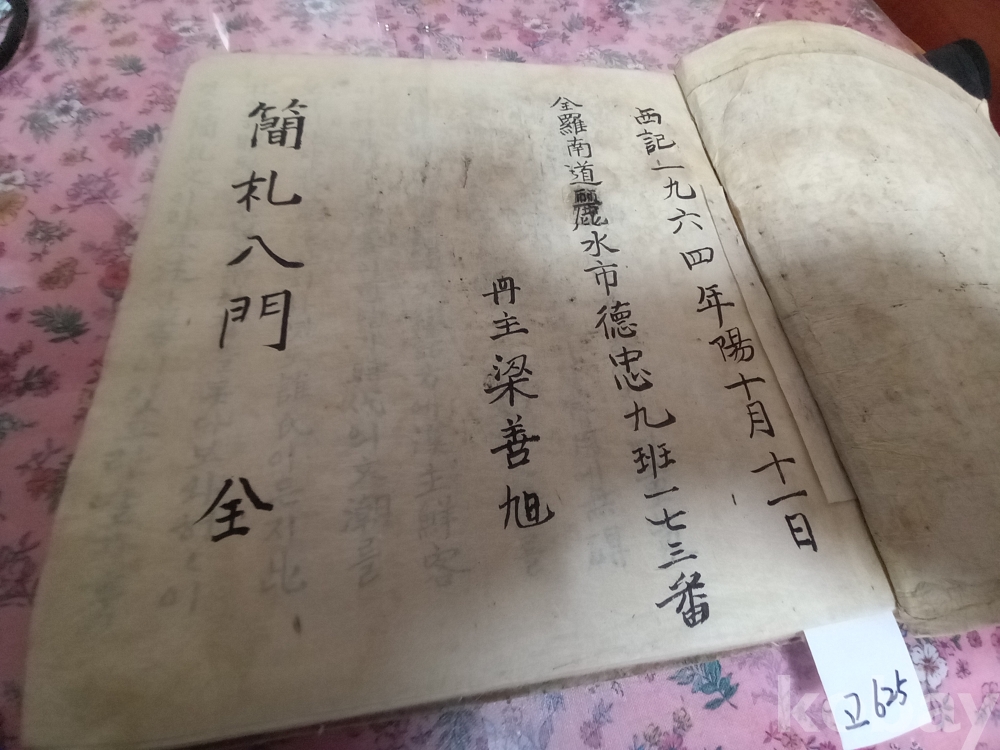 西記一九六四年陽十月十一日
全羅南道麗水市德忠九班一七三番
冊主梁善旭
簡札八門 全
고625